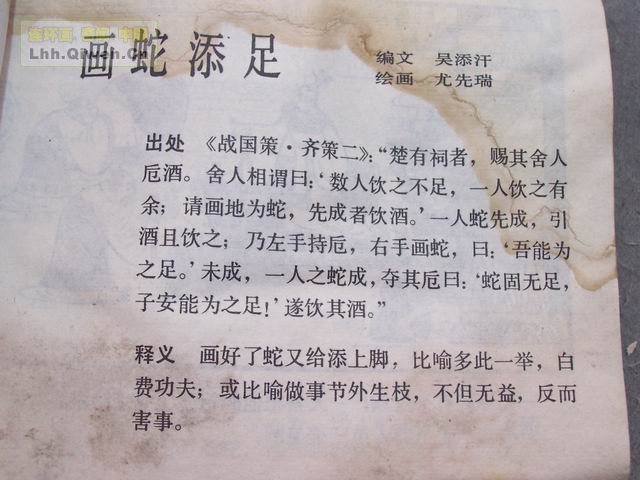 连环画 看吧 中国
Lhh.Qiyeh.Cn
画蛇添足
编文 吴添汗
绘画 尤先瑞
出处 《战国策·齐策二》:“楚有祠者,赐其舍人
卮酒。舍人相谓曰:‘数人饮之不足,一人饮之有
余;请画地为蛇,先成者饮酒。’一人蛇先成,引
酒且饮之;乃左手持卮,右手画蛇,曰:‘吾能为
之足。’未成,一人之蛇成,夺其卮曰:‘蛇固无足,
子安能为之足!’遂饮其酒。”
释义 画好了蛇又给添上脚,比喻多此一举,白
费功夫;或比喻做事节外生枝,不但无益,反而
害事。